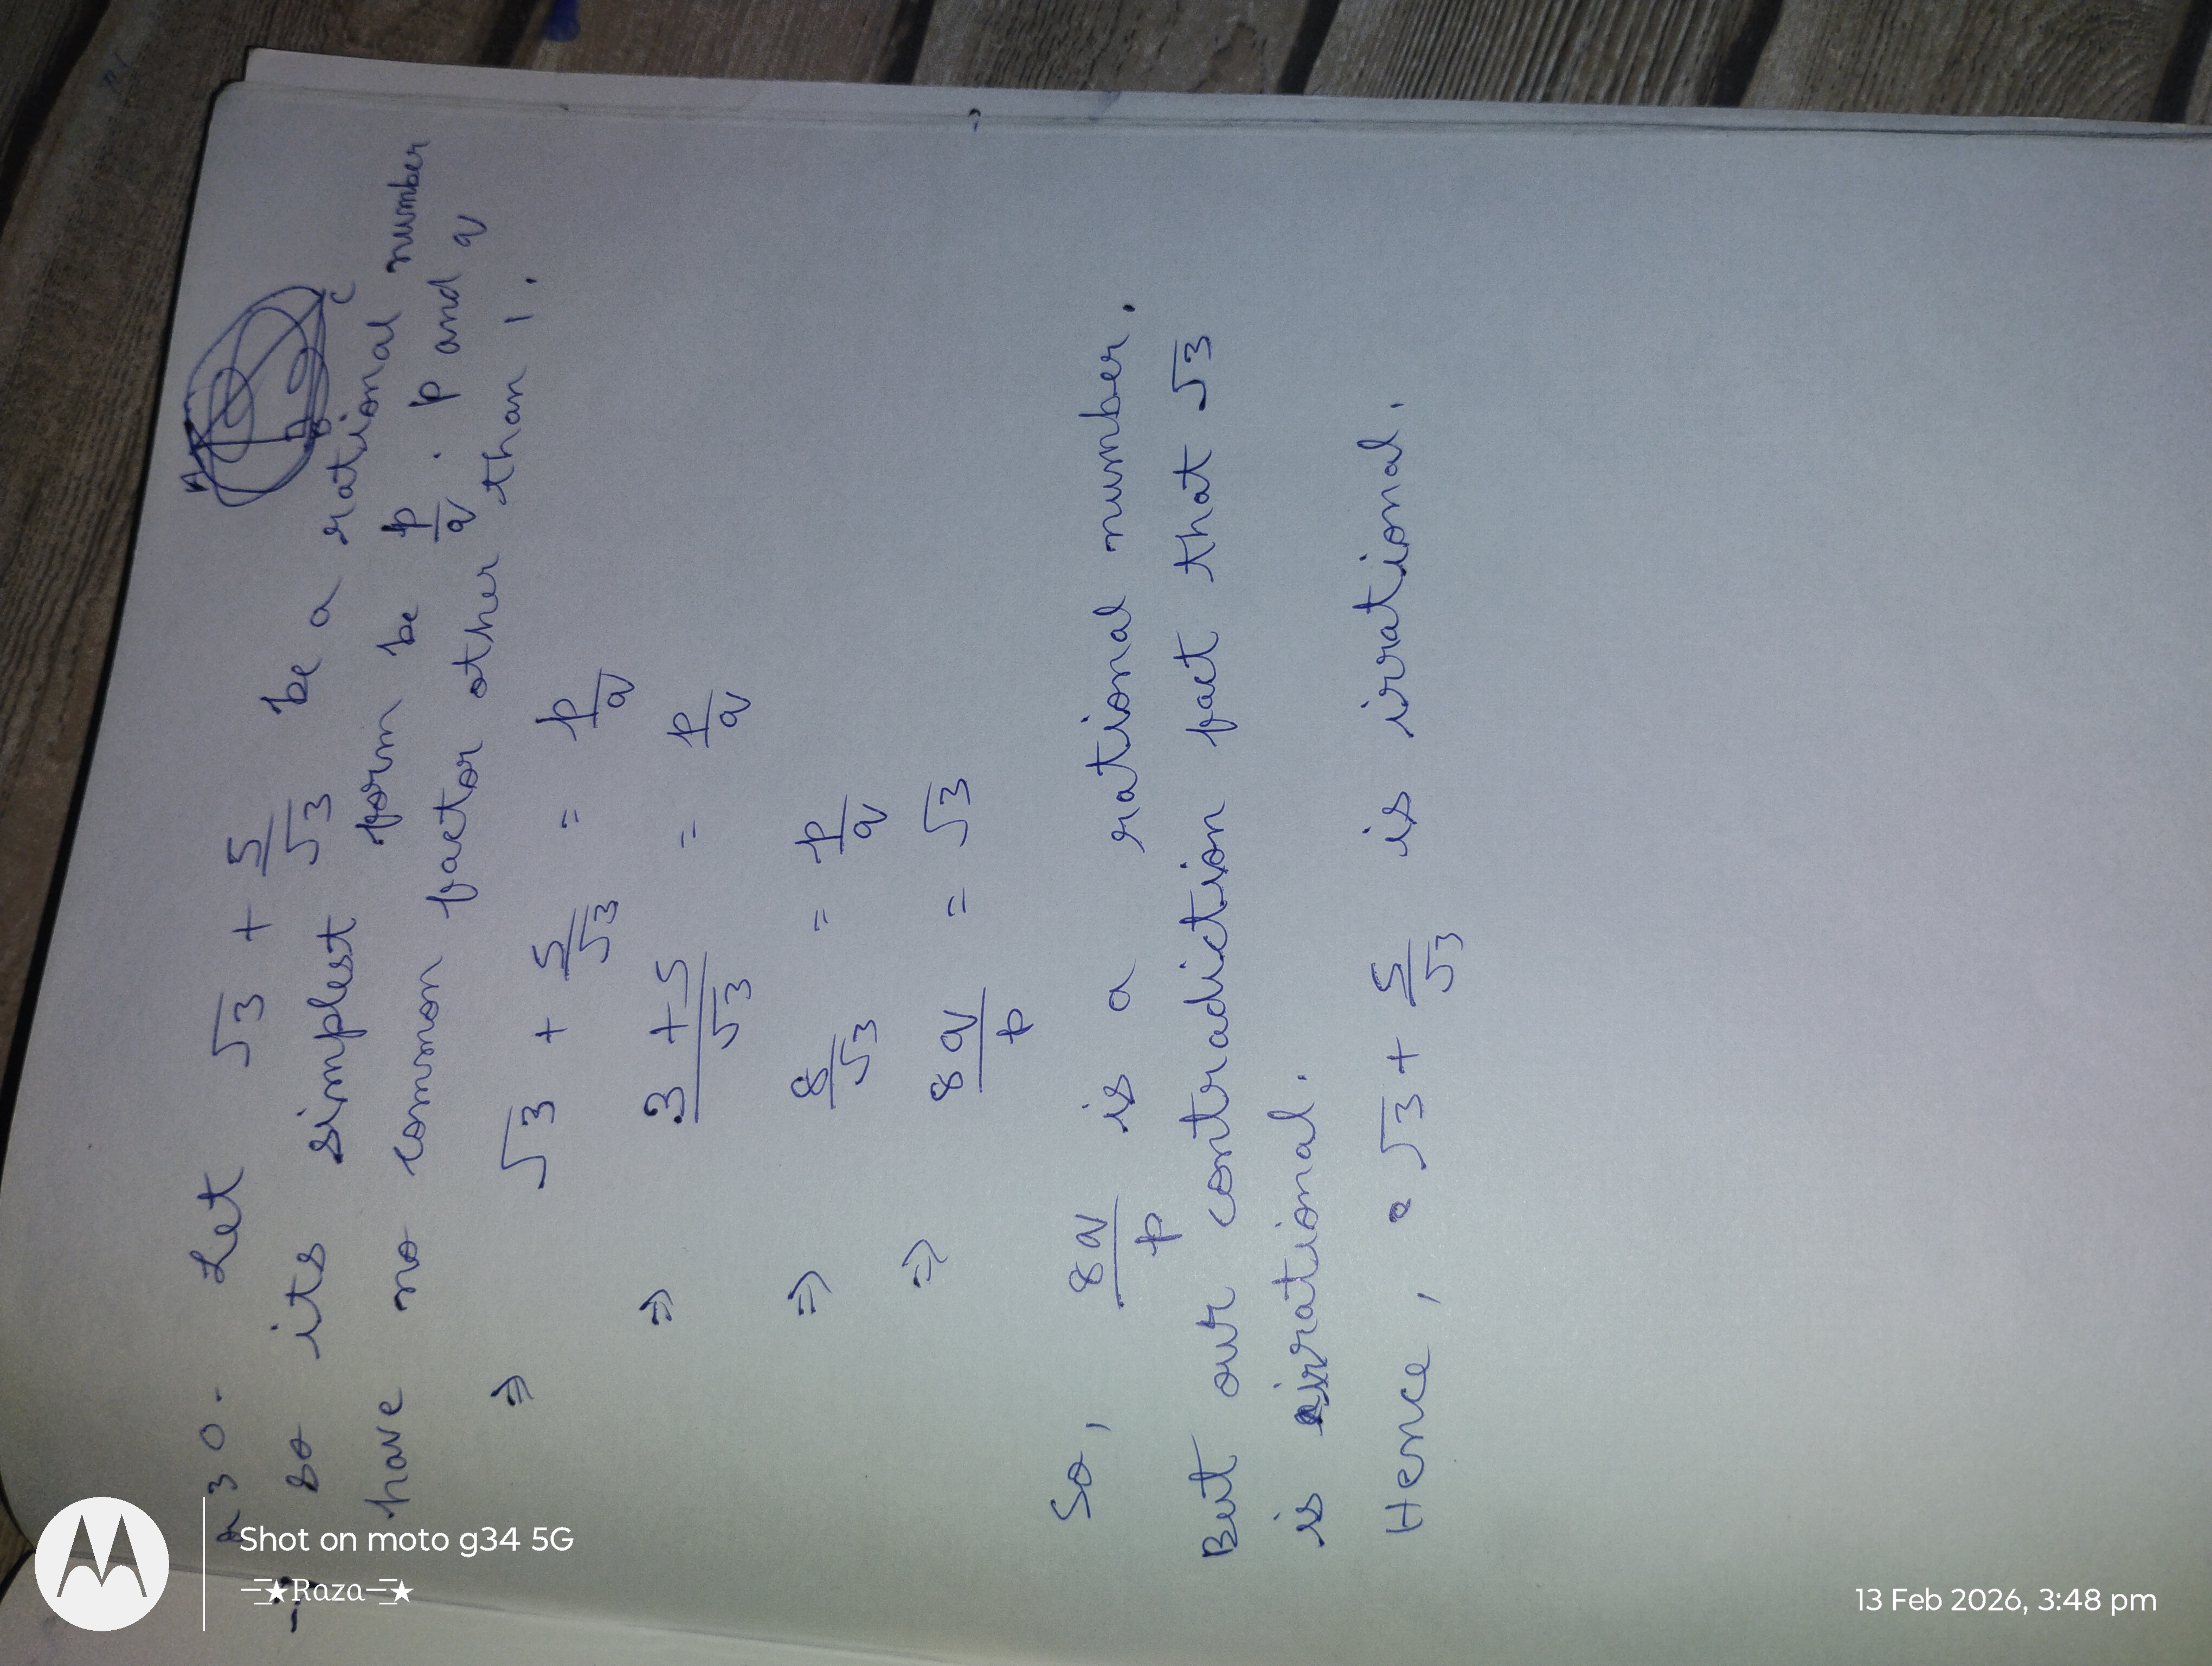 A 30. Let √3 + 5/√3 be a rational number
so its simplest form be p/q . p and q
have no common factor other than 1.
⇒ √3 + 5/√3 = p/q
⇒ 3 + 5/√3 = p/q
⇒ 8/√3 = p/q
⇒ 8q/p = √3
So, 8q/p is a rational number.
But our contradiction fact that √3
is irrational.
Hence, √3 + 5/√3 is irrational.
Shot on moto g34 5G
Raza
13 Feb 2026, 3:48 pm